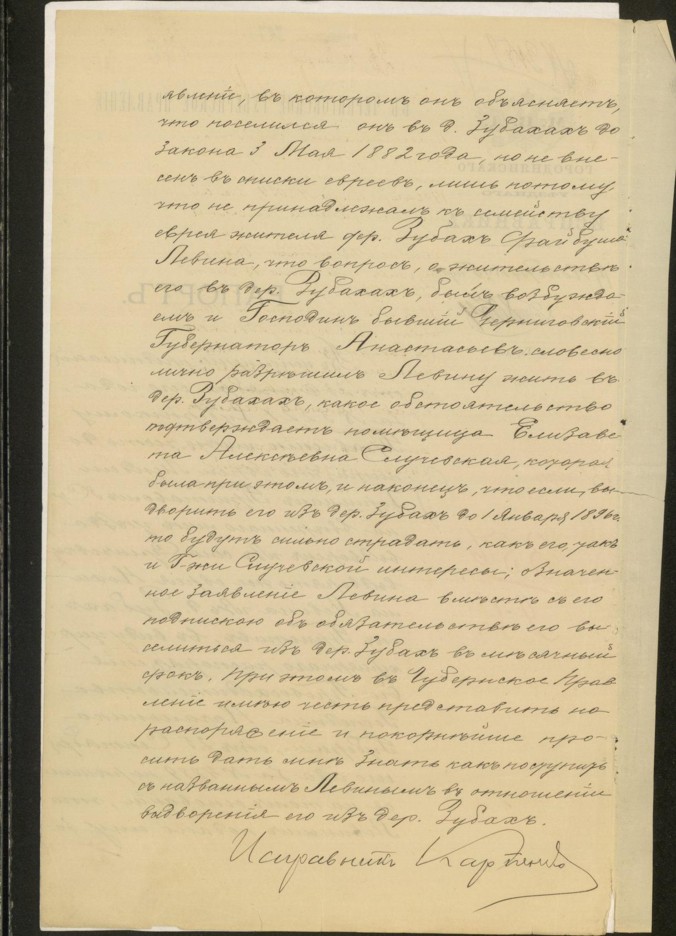 явленіе, въ которомъ онъ объясняетъ,
что поселился онъ въ д. Зубахахъ до
закона 3 Мая 1882 года, но не вне-
сенъ въ списки евреевъ, лишь потому
что не принадлежалъ къ семейству
еврея жителя дер. Зубахъ Файбуша
Левина, что вопросъ, о жительствѣ
его въ дер. Зубахахъ, былъ возбужда-
емъ и Господинъ бывшій Черниговскій
Губернаторъ Анастасьевъ словесно
лично разрѣшилъ Левину жить въ
дер. Зубахахъ, какое обстоятельство
подтверждаетъ помѣщица Елизаве
та Алексѣевна Случевская, которая
была при этомъ, и наконецъ, что если, вы-
дворить его изъ дер. Зубахъ до 1 Января 1896 г.
то будутъ сильно страдать, какъ его, такъ
и Г-жи Случевской интересы; Означен-
ное заявленіе Левина вмѣстѣ съ его
подпискою объ обязательствѣ его вы-
селиться изъ дер. Зубахъ въ мѣсячный
срокъ, при этомъ въ Губернское Прав
леніе имѣю честь представить на
распоряженіе и покорнѣйше про-
сить дать мнѣ знать какъ поступить
съ названнымъ Левинымъ въ отношеніи
выдворенія его изъ дер. Зубахъ.
Исправникъ